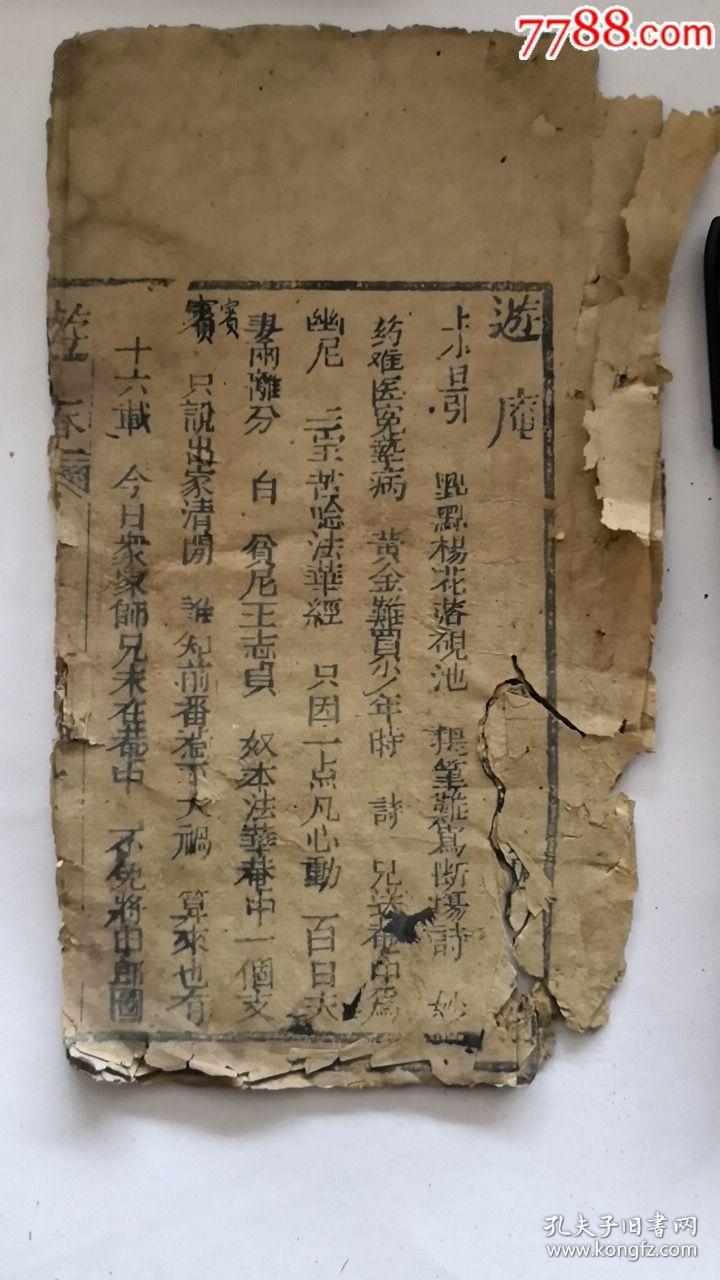 7788.com
遊庵
上小旦引 點點楊花落硯池 提筆難寫斷腸詩 妙
葯难医冤孽病 黄金難買少年時 詩 兄送菴中為
幽尼 三宗苦唸法華經 只因一点凡心動 百日夫
妻兩離分 白 貧尼王志貞 奴本法華菴中一個支
賓 賓 只說出家清閒 誰知前番惹下大禍 算來也有
十六載 今日衆家師兄未在菴中 不免將申郎圖
遊
孔夫子旧書网
www.kongfz.com